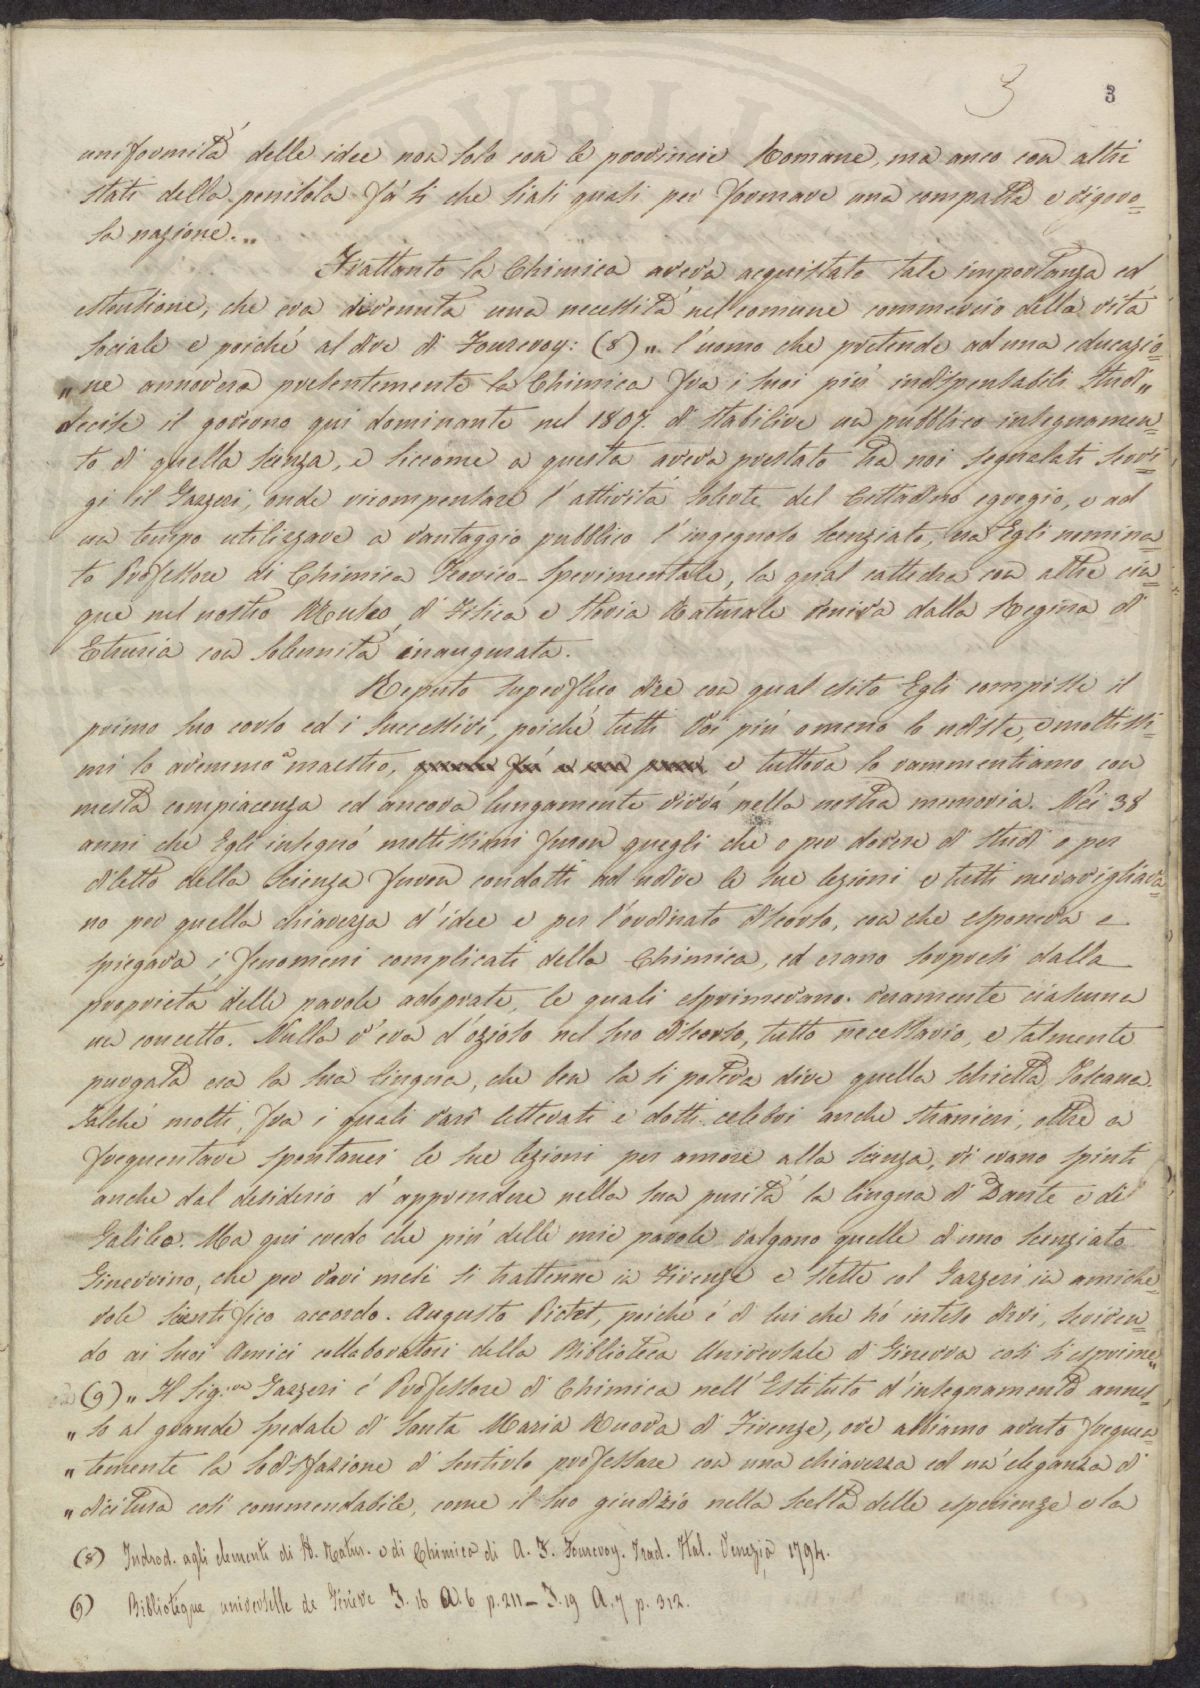 3 3
uniformità delle idee non solo con le provincie Romane, ma anco con altri
stati della penisola fà sì che siasi quasi per formare una compatta e vigoro=
sa nazione...
Frattanto la Chimica aveva acquistato tale importanza ed
estensione, che era divenuta una necessità nel comune commercio della vita
sociale e poiché al dire di Fourcroy: (8) „ l'uomo che pretende ad una educazio=
„ne annovera presentemente la Chimica fra i suoi più indispensabili studi„
decise il governo qui dominante nel 1807. di stabilire un pubblico insegnamen=
to di quella scienza, e siccome a questa aveva prestato tra noi segnalati servi=
gi il Gazzeri, onde ricompensare l'attività solerte del Cittadino egregio, e ad
un tempo utilizzare a vantaggio pubblico l'ingegnoso scenziato, va Egli nomina=
to Professore di Chimica Teorico-Sperimentale, la qual cattedra con altre cin=
que nel nostro Museo di Fisica e Storia Naturale veniva dalla Regina di
Etruria con solennità inaugurata.
Reputo superfluo dire con qual esito Egli compisse il
primo suo corso ed i successivi, poiché tutti voi più o meno lo udiste, e moltissi=
mi lo avemmo a maestro, e tuttora lo rammentiamo con
mesta compiacenza ed ancora lungamente vivrà nella nostra memoria. Nei 38
anni che Egli insegnò moltissimi furon quegli che o per dovere di studi o per
diletto della scienza furon condotti ad udire le sue lezioni e tutti meravigliava=
no per quella chiarezza d'idee e per l'ordinato discorso, con che esponeva e
spiegava i fenomeni complicati della Chimica, ed erano sorpresi dalla
proprietà delle parole adoprate, le quali esprimevano veramente ciascuna
un concetto. Nulla v'era d'ozioso nel suo discorso, tutto necessario, e talmente
purgata era la sua lingua, che ben la si poteva dire quella schietta Toscana.
Talché molti, fra i quali vari letterati e dotti celebri anche stranieri, oltre a
frequentare spontanei le sue lezioni per amore alla scienza, vi erano spinti
anche dal desiderio d'apprendere nella sua purità la lingua di Dante e di
Galileo. Ma qui credo che più delle mie parole valgano quelle d'uno scenziato
Ginevrino, che per vari mesi si trattenne in Firenze e stette col Gazzeri in amiche=
vole scientifico accordo. Augusto Pictet, poiché è di lui che hò inteso dirvi, scriven=
do ai suoi Amici collaboratori della Biblioteca Universale di Ginevra così si esprime„
(9) „ Il Sig.or Gazzeri è Professore di Chimica nell'Istituto d'insegnamento annes=
„so al grande spedale di Santa Maria Nuova di Firenze, ove abbiamo avuto frequen=
„temente la sodisfazione di sentirlo professare con una chiarezza ed un'eleganza di
„dicitura così commendabile, come il suo giudizio nella scelta delle esperienze e la
(8) Indrod. agli elementi di St. Natur. e di Chimica di A. F. Fourcroy. Trad. Ital. Venezia 1794.
(9) Bibliotèque universelle de Génève T. 16 A. 6 p. 211 – T. 19 A. 7 p. 312.